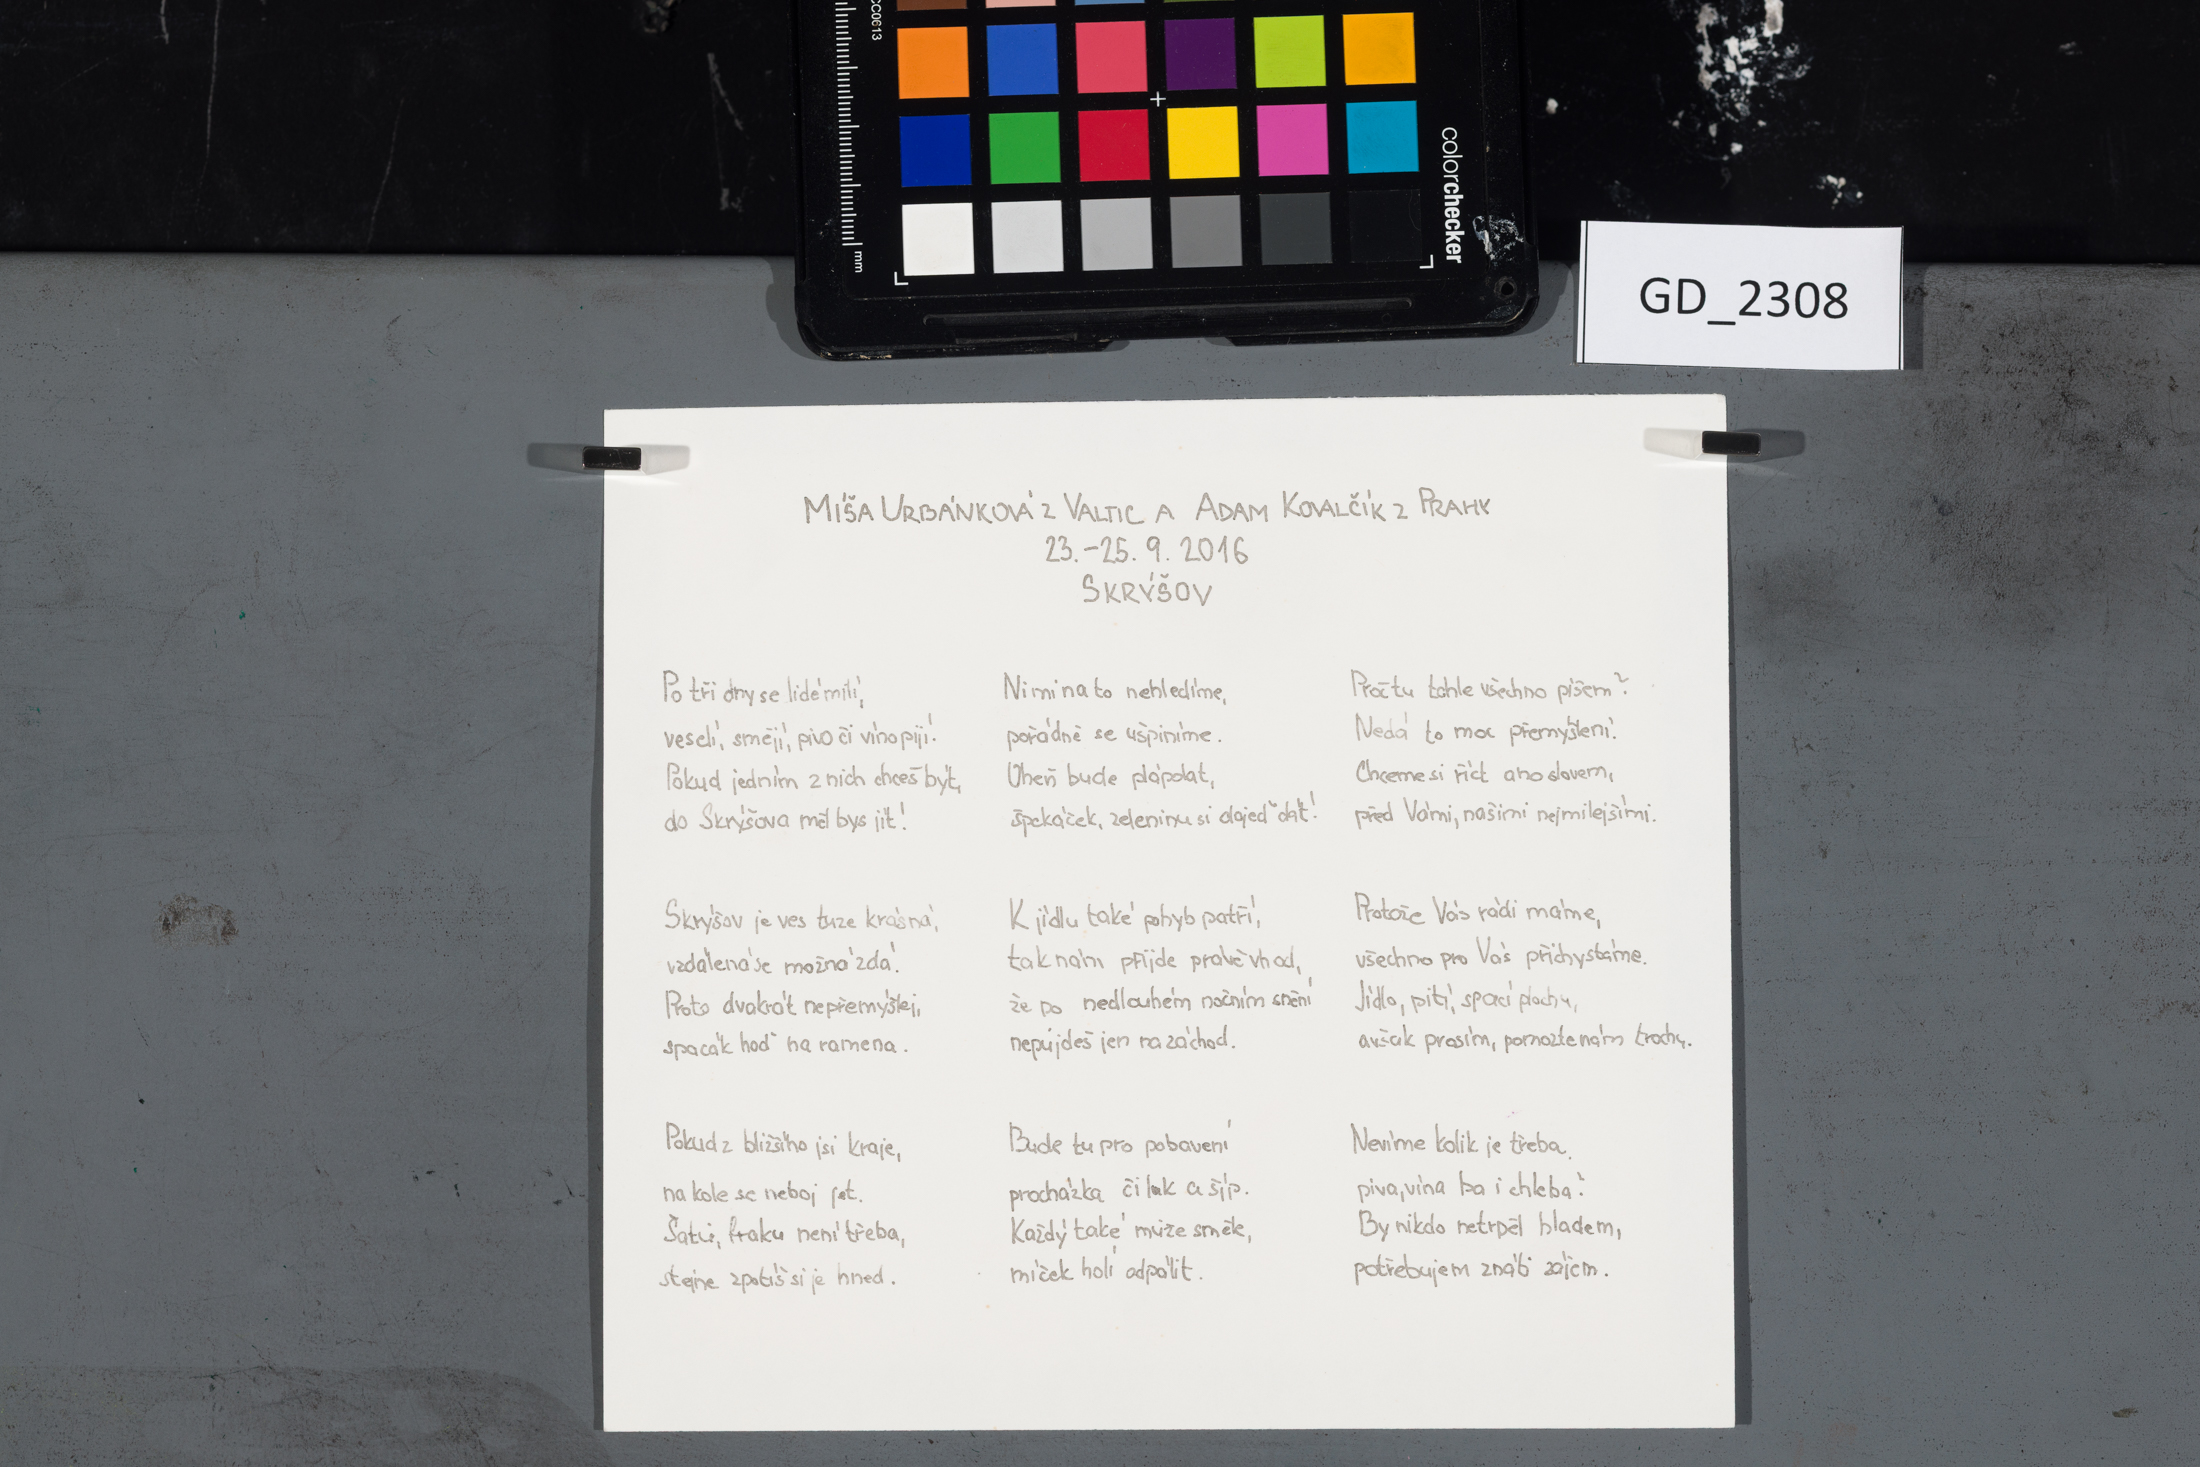 CC0613
mm
colorchecker
GD_2308
MÍŠA URBÁNKOVÁ Z VALTIC A ADAM KOVALČÍK Z PRAHY
23.-25. 9. 2016
SKRÝŠOV
Po tři dny se lidé milí,
veselí, smějí, pivo či víno pijí.
Pokud jedním z nich chceš být,
do Skrýšova měl bys jít!
Skrýšov je ves tuze krásná,
vzdálená se možná zdá.
Proto dvakrát nepřemýšlej,
spacák hoď na ramena.
Pokud z bližšího jsi kraje,
na kole se neboj jet.
Šatů, fraku není třeba,
stejne zpotíš si je hned.
Nimi na to nehledíme,
pořádně se ušpiníme.
Oheň bude plápolat,
špekáček, zeleninu si dojeď dát!
K jídlu také pohyb patří,
tak nám příjde právě vhod,
že po nedlouhém nočním snění
nepůjdeš jen na záchod.
Bude tu pro pobavení
procházka či luk a šíp.
Každý také může směle,
míček holí odpálit.
Proč tu tohle všechno píšem?
Nedá to moc přemýšlení.
Chceme si říct ano slovem,
před Vámi, našimi nejmilejšími.
Protože Vás rádi máme,
všechno pro Vás přichystáme.
Jídlo, pití, spací plochu,
avšak prosím, pomozte nám trochu.
Nevíme kolik je třeba
piva, vína ba i chleba?
By nikdo netrpěl hladem,
potřebujem znáti zájem.